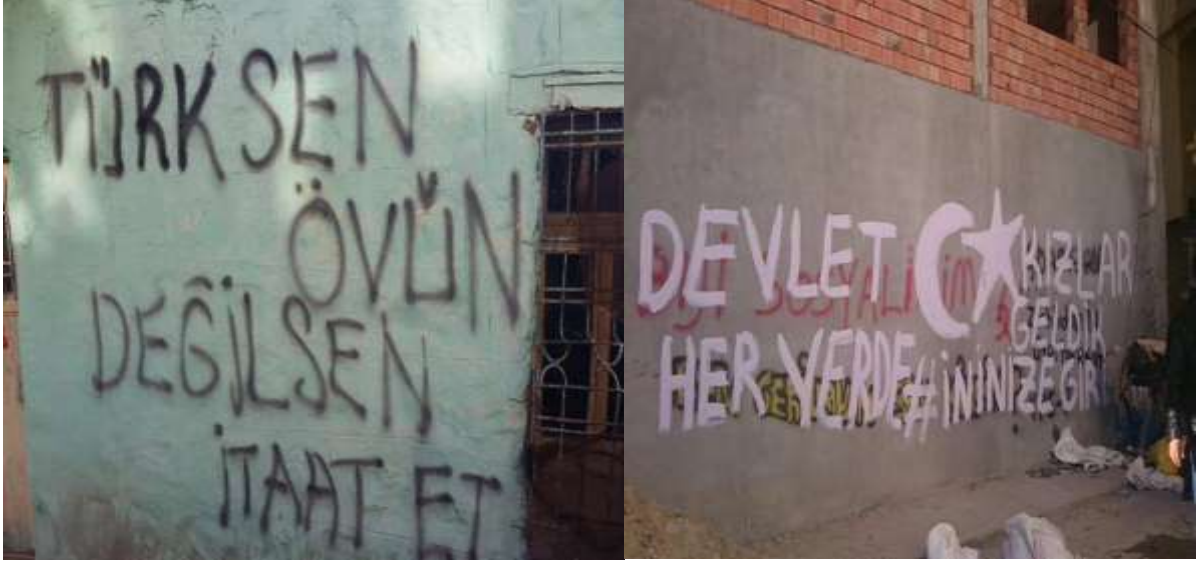 TÜRKSEN
ÖVÜN
DEĞİLSEN
İTAAT ET
DEVLET
HER YERDE
KIZLAR
GELDİK
#İNİNİZE GİR